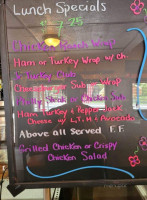 Lunch Specials
Chicken Ranch Wrap
Ham or Turkey Wrap w/ ch.
Turkey Club
Cheese or Wrap
Philly Steak or Chicken Sub
Ham, Turkey & Pepper Jack
Cheese w/ L, T, M & Avocado
Above all Served F.F
Grilled Chicken or Crispy
Chicken Salad